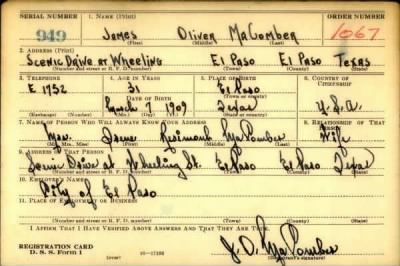 SERIAL NUMBER 1. NAME (Print) ORDER NUMBER
949 JAMES OLIVER MACOMBER 1067
(First) (Middle) (Last)
2. ADDRESS (Print)
SCENIC DRIVE AT WHEELING EL PASO EL PASO TEXAS
(Number and street or R. F. D. number) (Town) (County) (State)
3. TELEPHONE 4. AGE IN YEARS 5. PLACE OF BIRTH 6. COUNTRY OF CITIZENSHIP
E 1752 31 El Paso
DATE OF BIRTH (Town or county)
March 7 1909 Texas U.S.A.
(Exchange) (Number) (Mo.) (Day) (Yr.) (State or country)
7. NAME OF PERSON WHO WILL ALWAYS KNOW YOUR ADDRESS 8. RELATIONSHIP OF THAT PERSON
Mrs. Irene MaComber Wife
(Mr., Mrs., Miss) (First) (Middle) (Last)
9. ADDRESS OF THAT PERSON
Scenic Drive at Wheeling St. El Paso El Paso Texas
(Number and street or R. F. D. number) (Town) (County) (State)
10. EMPLOYER'S NAME
City of El Paso
11. PLACE OF EMPLOYMENT OR BUSINESS
(Number and street or R. F. D. number) (Town) (County) (State)
I AFFIRM THAT I HAVE VERIFIED ABOVE ANSWERS AND THAT THEY ARE TRUE.
REGISTRATION CARD
D. S. S. Form 1 J. O. MaComber
(Registrant's signature)